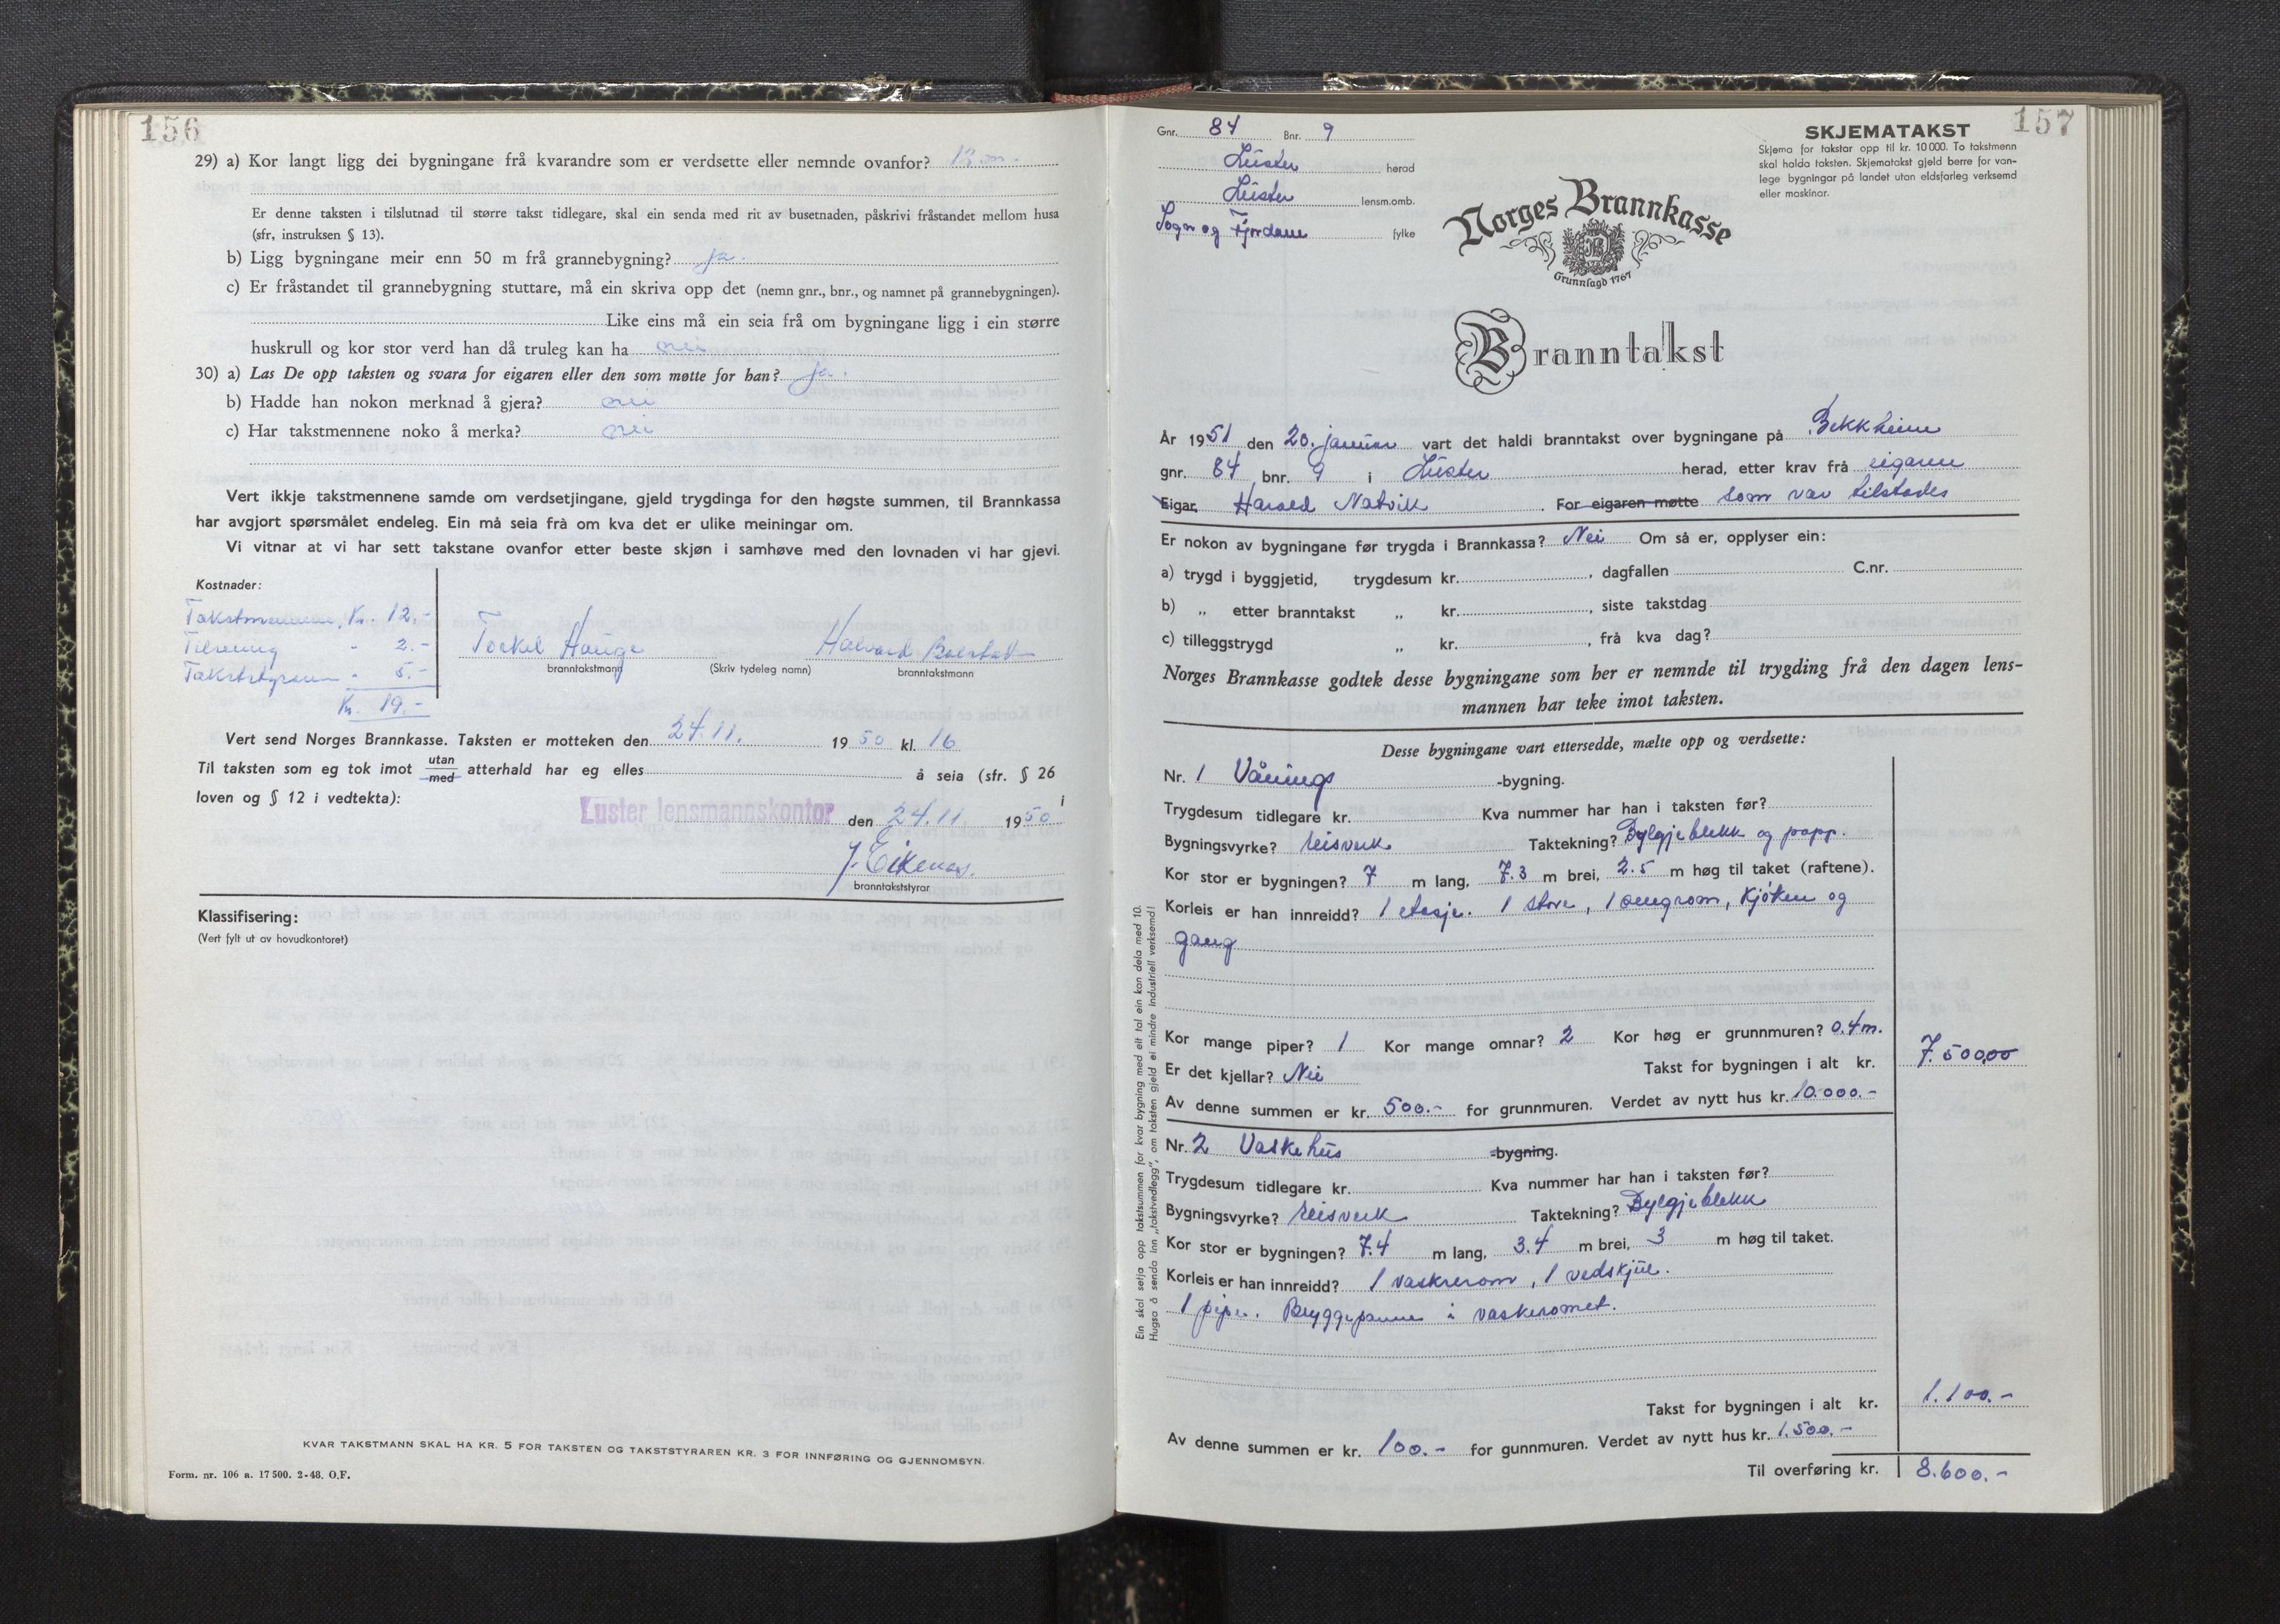 156
29) a) Kor langt ligg dei bygningane frå kvarandre som er verdsette eller nemnde ovanfor? 12 m.
Er denne taksten i tilslutnad til større takst tidlegare, skal ein senda med rit av busetnaden, påskrivi fråstandet mellom husa
(sfr, instruksen § 13).
b) Ligg bygningane meir enn 50 m frå grannebygning? ja.
c) Er fråstandet til grannebygning stuttare, må ein skriva opp det (nemn gnr., bnr., og namnet på grannebygningen).
Like eins må ein seia frå om bygningane ligg i ein større
huskrull og kor stor verd han då truleg kan ha nei
30) a) Las De opp taksten og svara for eigaren eller den som møtte for han? ja.
b) Hadde han nokon merknad å gjera? nei
c) Har takstmennene noko å merka? nei
Vert ikkje takstmennene samde om verdsetjingane, gjeld trygdinga for den høgste summen, til Brannkassa
har avgjort spørsmålet endeleg. Ein må seia frå om kva det er ulike meiningar om.
Vi vitnar at vi har sett takstane ovanfor etter beste skjøn i samhøve med den lovnaden vi har gjevi.
Kostnader:
Takstmennene, Kr. 12,-
- 2.-
Takststyraren - 5.-
Kr. 19.-
Torkel Hauge Halvard
branntakstmann (Skriv tydeleg namn) branntakstmann
Vert send Norges Brannkasse. Taksten er motteken den 24.11. 1950 kl. 16
Til taksten som eg tok imot utan/med atterhald har eg elles å seia (sfr. § 26
loven og § 12 i vedtekta): i
Luster lensmannskontor den 24.11. 1950
J. Eikenæs.
branntakststyrar
Klassifisering:
(Vert fylt ut av hovudkontoret)
KVAR TAKSTMANN SKAL HA KR. 5 FOR TAKSTEN OG TAKSTSTYRAREN KR. 3 FOR INNFØRING OG GJENNOMSYN.
Form. nr. 106 a. 17 500. 2-48. O.F.
157
Gnr. 84 Bnr. 9
Lüster herad
Lüster lensm.omb.
Sogn og Fjordane fylke
SKJEMATAKST
Skjema for takstar opp til kr. 10 000. To takstmenn
skal halda taksten. Skjematakst gjeld berre for van-
lege bygningar på landet utan eldsfarleg verksemd
eller maskinar.
Norges Brannkasse
Grunnlagd 1767
Branntakst
År 1951 den 20. januar vart det haldi branntakst over bygningane på Bekkheim
gnr. 84 bnr. 9 i Lüster herad, etter krav frå eigaren
Eigar, Harald Natvik. For eigaren møtte som var tilstades
Er nokon av bygningane før trygda i Brannkassa? Nei Om så er, opplyser ein:
a) trygd i byggjetid, trygdesum kr. , dagfallen C.nr.
b) „ etter branntakst „ kr. , siste takstdag
c) tilleggstrygd „ kr. , frå kva dag?
Norges Brannkasse godtek desse bygningane som her er nemnde til trygding frå den dagen lens-
mannen har teke imot taksten.
Desse bygningane vart ettersedde, mælte opp og verdsette:
Nr. 1 Vånings -bygning.
Trygdesum tidlegare kr. Kva nummer har han i taksten før?
Bygningsvyrke? reisverk Taktekning? Bylgjeblekk og papp.
Kor stor er bygningen? 7 m lang, 7.3 m brei, 2.5 m høg til taket (raftene).
Korleis er han innreidd? 1 etasje. 1 stove, 1 sengrom, Kjøken og
gang
Kor mange piper? 1 Kor mange omnar? 2 Kor høg er grunnmuren? 0.4 m.
Er det kjellar? Nei Takst for bygningen i alt kr. 7.500,00
Av denne summen er kr. 500.- for grunnmuren. Verdet av nytt hus kr. 10.000.-
Nr. 2 Vaskehüs -bygning.
Trygdesum tidlegare kr. Kva nummer har han i taksten før?
Bygningsvyrke? reisverk Taktekning? Bylgjeblekk
Kor stor er bygningen? 7.4 m lang, 3.4 m brei, 3 m høg til taket.
Korleis er han innreidd? 1 vaskerom, 1 vedskjül.
1 pipe. Bryggepanne i vaskeromet.
Takst for bygningen i alt kr. 1.100.-
Av denne summen er kr. 100.- for gunnmuren. Verdet av nytt hus kr. 1.500.-
Til overføring kr. 8.600.-
Ein skal setja opp takstsummen for kvar bygning med eit tal ein kan dela med 10.
Hugsa å senda inn „takstvedlegg”, om taksten gjeld ei mindre industriell verksemd!